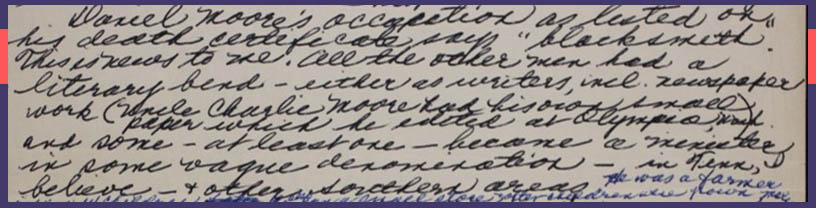 Daniel Moore's occupation as listed on
his death certificate says "blacksmith."
This is news to me. All the other men had a
literary bend - either as writers, incl. newspaper
work (Uncle Charlie Moore had his own small
paper which he edited at Olympia, Wash.)
and some - at least one - became a minister
in some vague denomination - in Tenn, I
believe - + other southern areas. He was a farmer